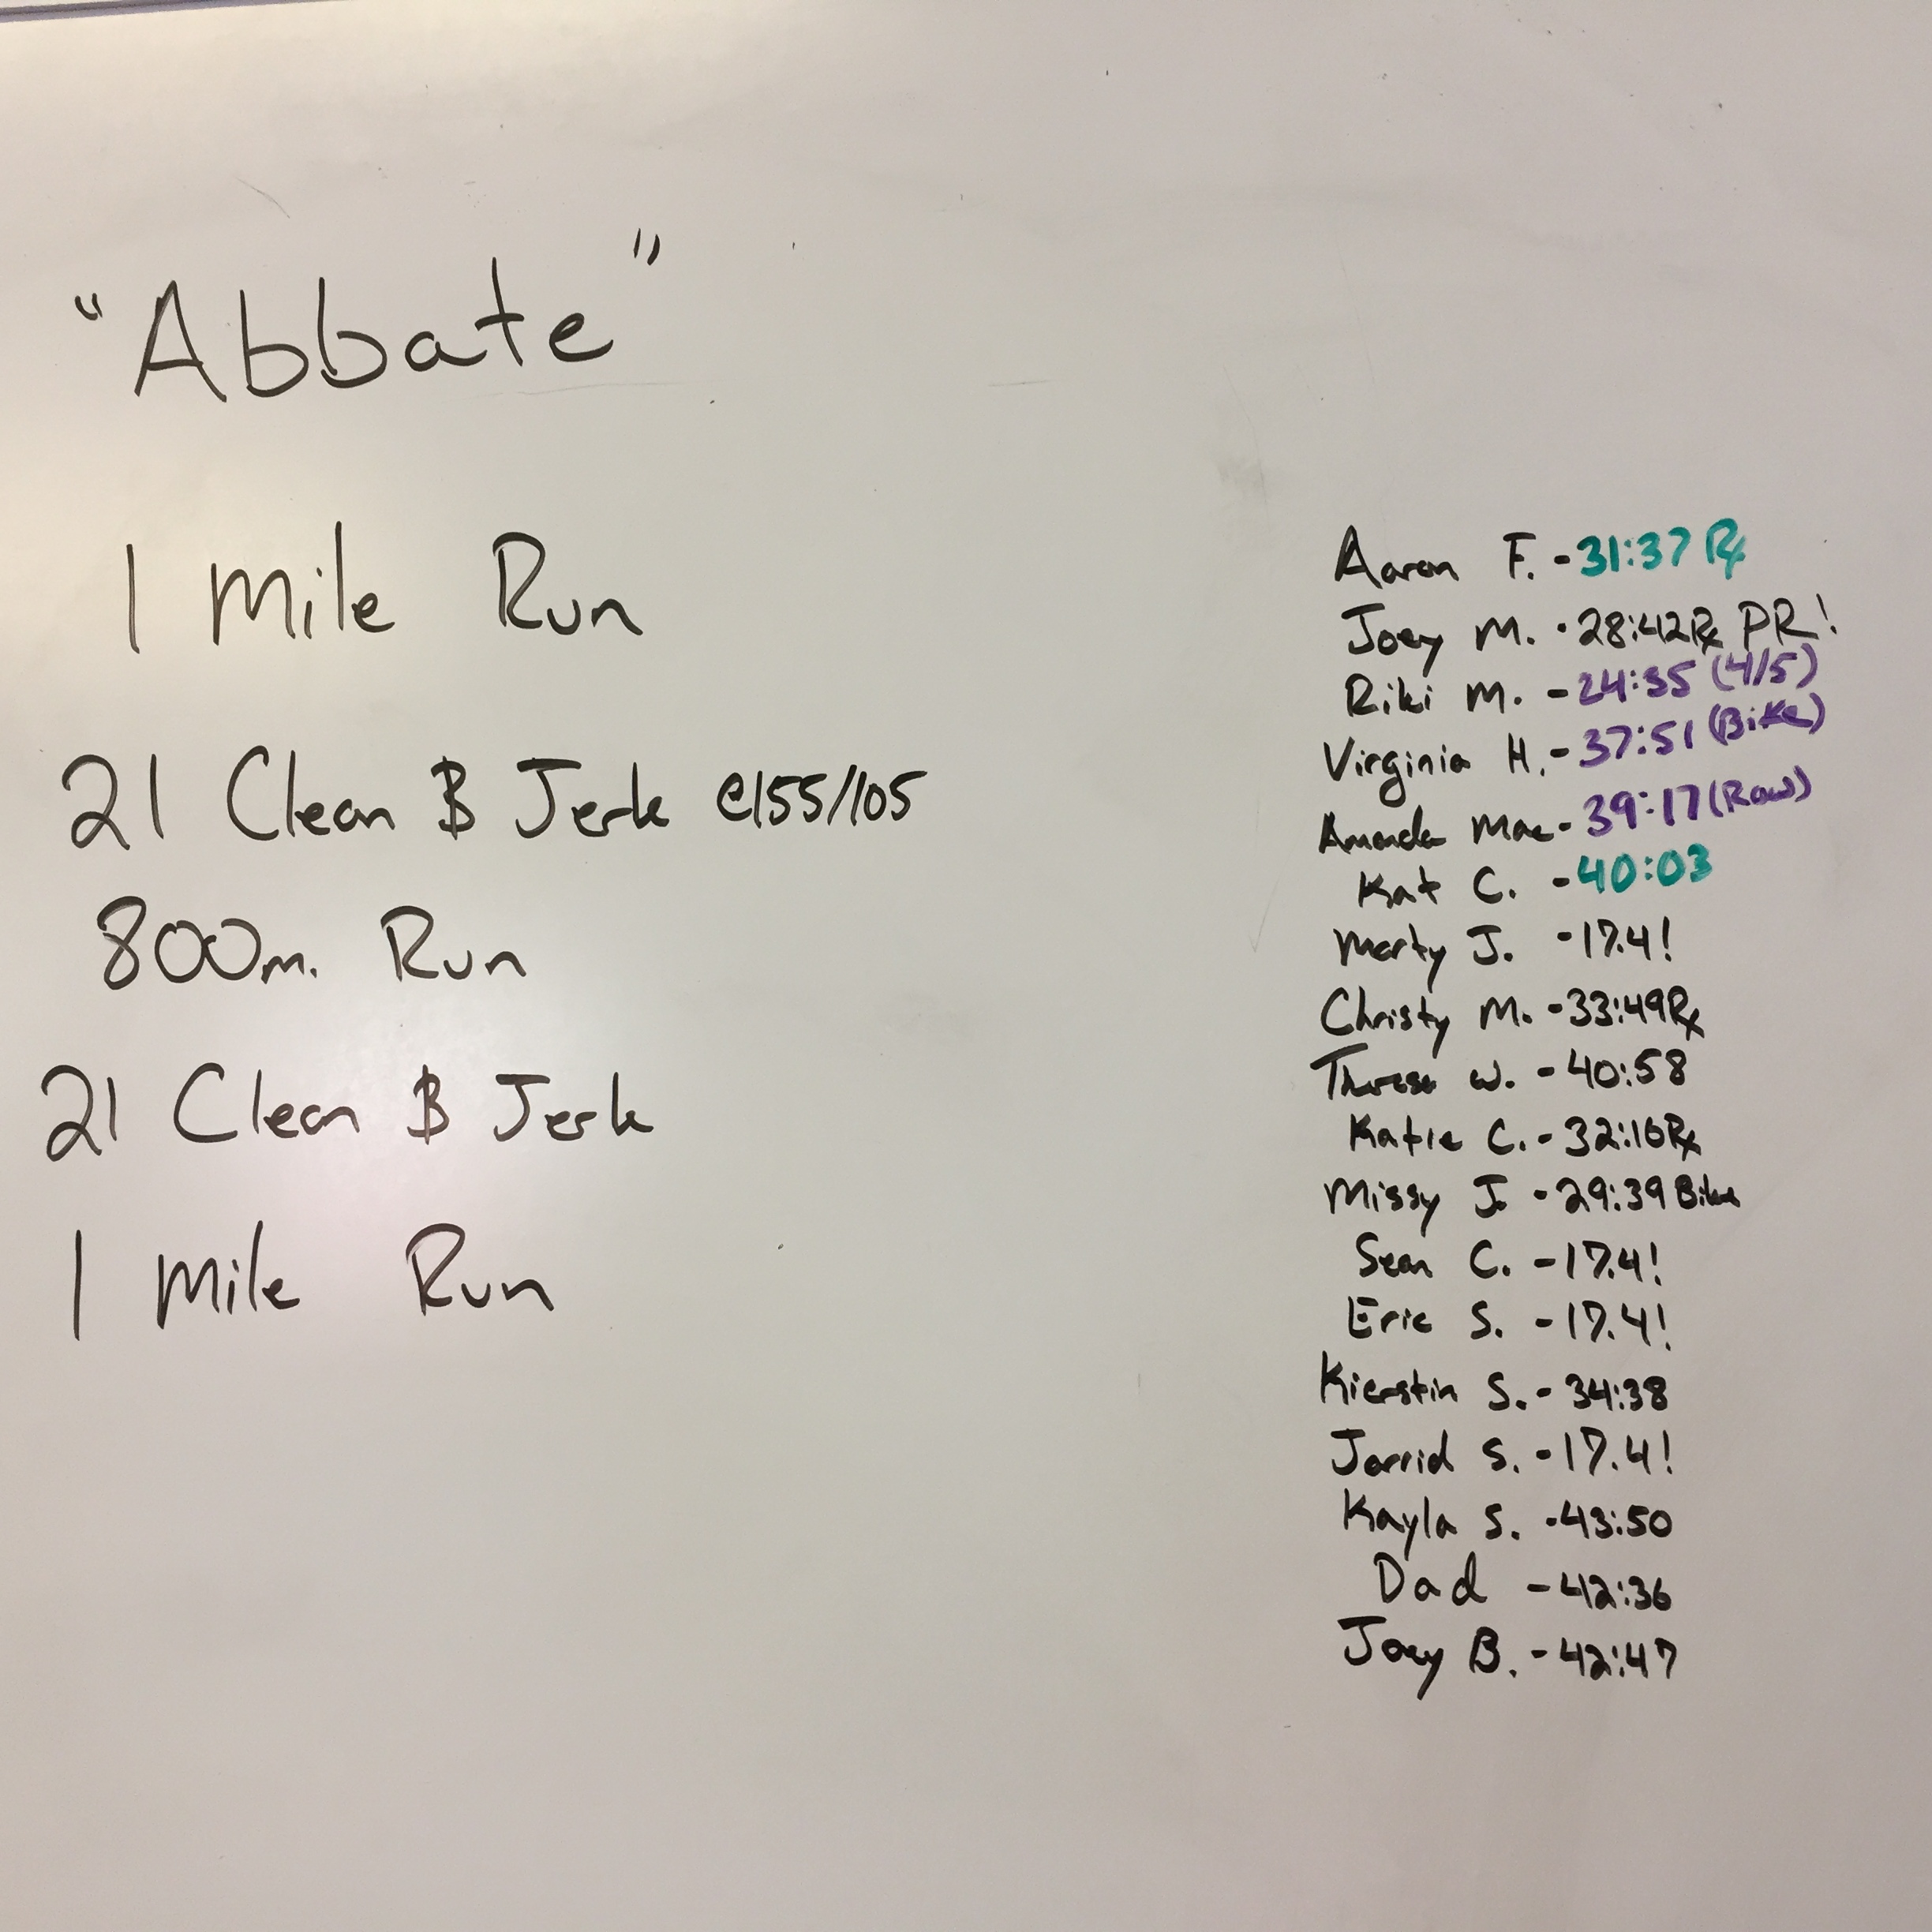 "Abbate"
1 Mile Run
21 Clean & Jerk @155/105
800m. Run
21 Clean & Jerk
1 Mile Run
Aaron F. - 31:37 Rx
Joey M. - 28:42 Rx PR!
Riki M. - 24:35 (4/5)
Virginia H. - 37:51 (Bike)
Amanda Mae - 39:17 (Row)
Kat C. - 40:03
Marty J. - 17.4!
Christy M. - 33:49 Rx
Theresa W. - 40:58
Katie C. - 32:16 Rx
Missy J. - 29:39 Bike
Sean C. - 17.4!
Eric S. - 17.4!
Kierstin S. - 34:38
Jarrid S. - 17.4!
Kayla S. - 43:50
Dad - 42:36
Joey B. - 42:47